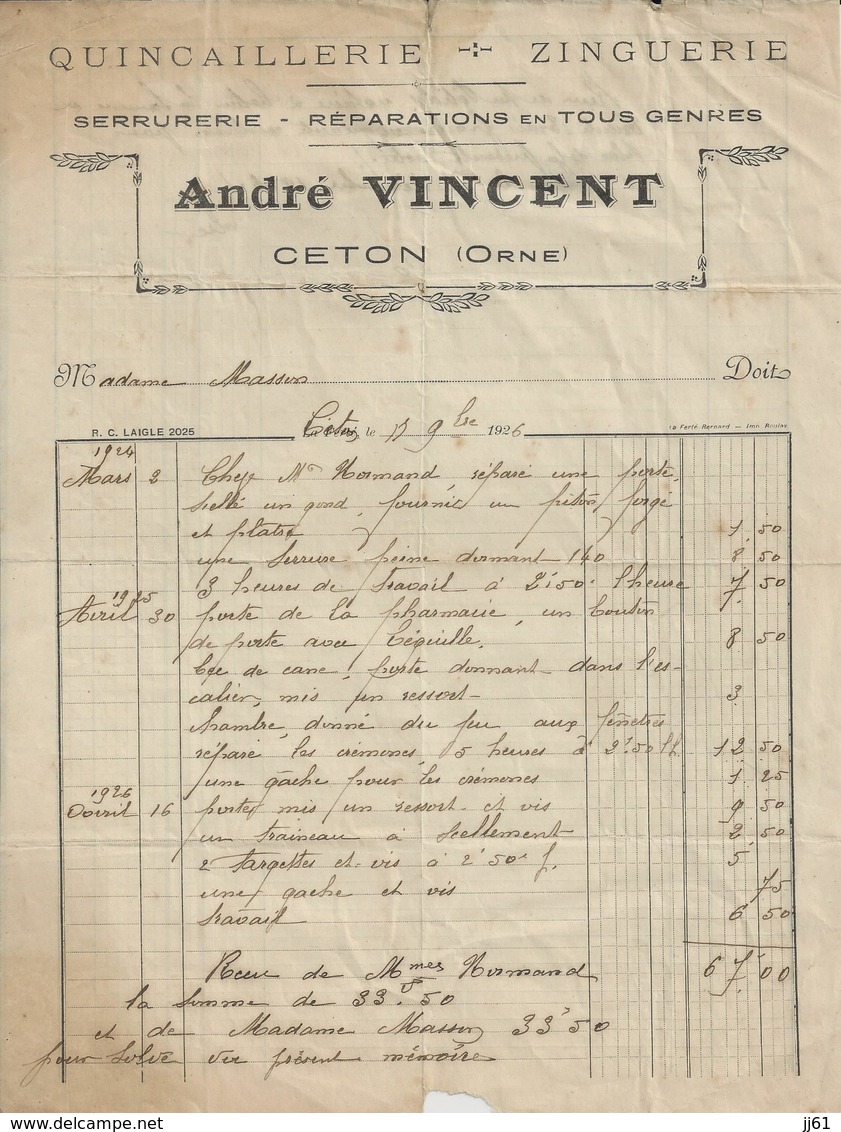 QUINCAILLERIE ZINGUERIE
SERRURERIE - RÉPARATIONS EN TOUS GENRES
André VINCENT
CETON (ORNE)
Madame Masson Doit
R. C. LAIGLE 2025
Ceton, le 15 9bre 1926
La Ferté-Bernard — Imp. Boulay
1924
Mars 2 Chez Me Normand, réparé une porte,
scellé un gond, fournie un piston forgé
et platre 1,50
une serrure peine dormant 140 8 50
3 heures de travail à 2f50c l'heure 7 50
1925
Avril 30 porte de la pharmacie, un bouton
de porte avec béquille, 8 50
bec de cane, porte donnant dans l'es-
calier, mis un ressort 3
chambre, donné du feu aux fenêtres
réparé les crémones, 5 heures à 2f50 lh 12 50
une gâche pour les crémones 1 25
1926
Avril 16 porte, mis un ressort et vis 9 50
un traineau à scellement 2 50
2 targettes et vis à 2f50c f. 5
une gache et vis 75
travail 6 50
67,00
Reçu de Mmes Normand
la somme de 33f.50
et de Madame Masson 33f50
pour solve du présent mémoire
jj61